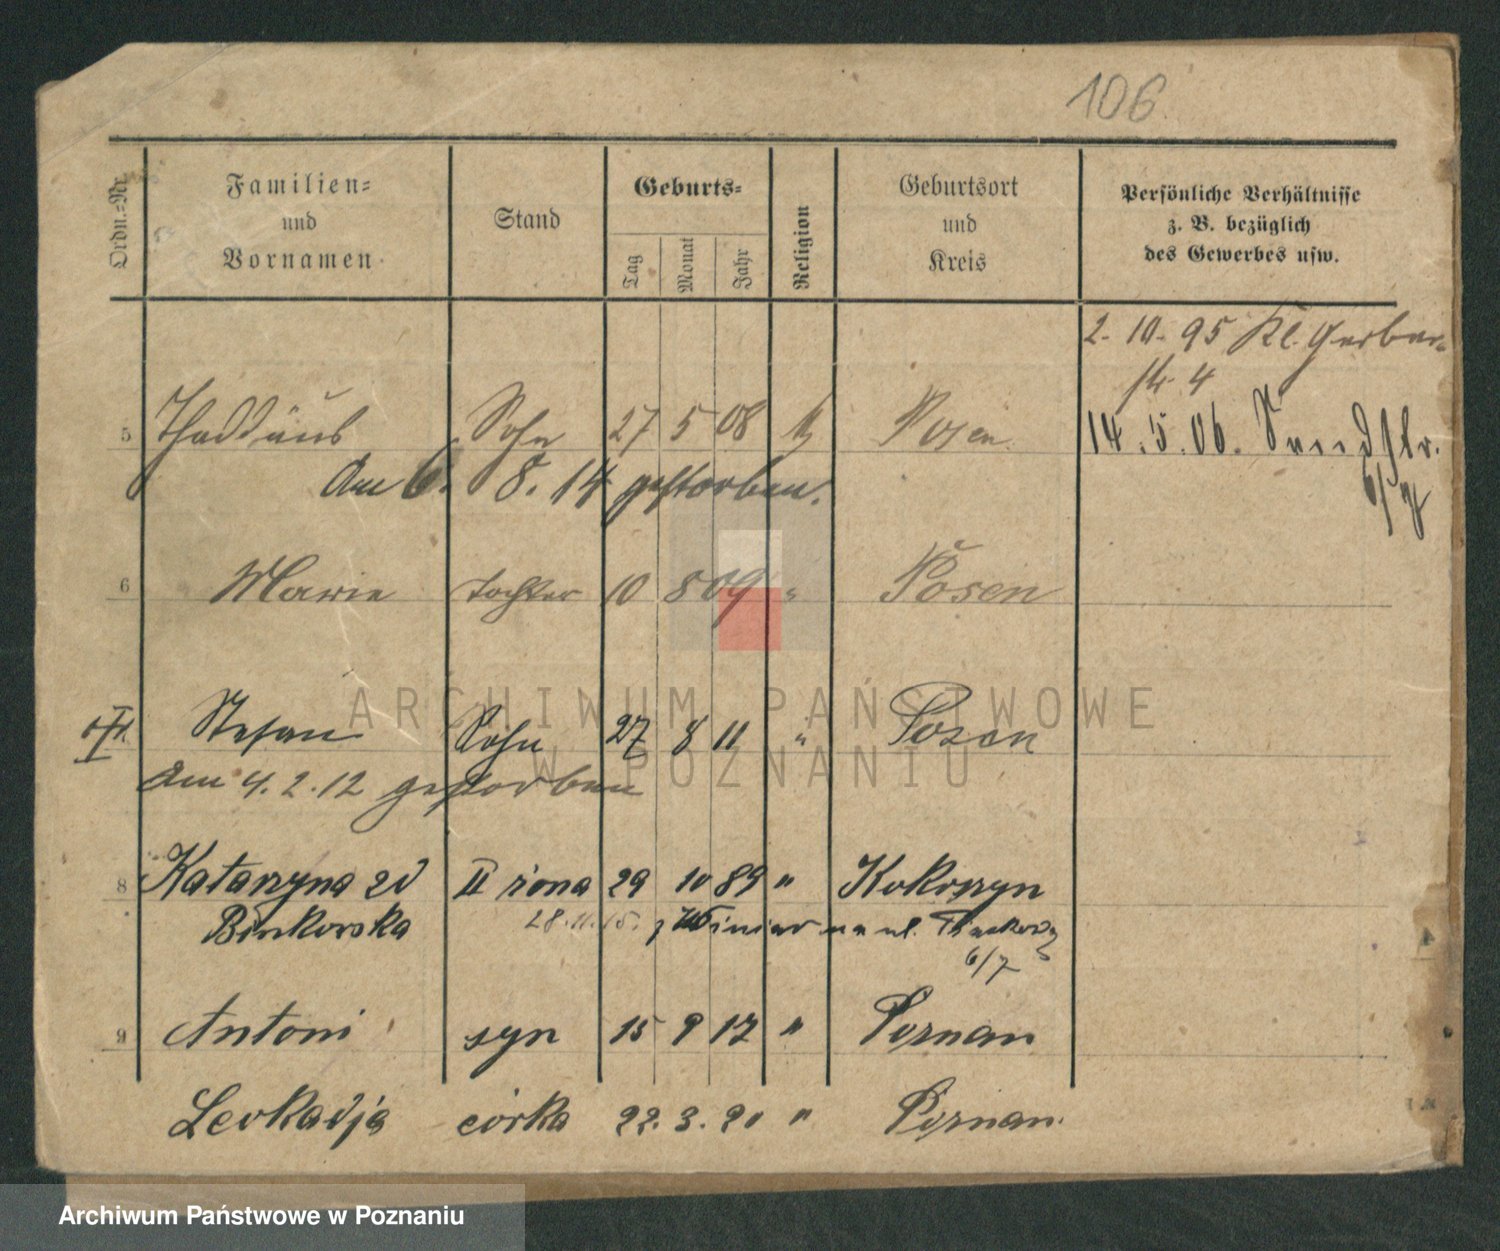 106
Ordn.-Nr.
Familien- und Vornamen
Stand
Geburts-
Tag Monat Jahr
Religion
Geburtsort und Kreis
Persönliche Verhältnisse z. B. bezüglich des Gewerbes usw.
2. 10. 95 Kl. Gerber-
str 4
5 Thaddäus Sohn 27 5 08 Posen 14. 5. 06.
Am 6. 8. 14 gestorben.
6/7
6 Marie Tochter 10 8 09 " Posen
Stefan Sohn 27 8 11 " Posen
Am 4. 2. 12 gestorben
8 Katarzyna zd II żona 29 10 89 " Kokoszyn
Binkowska 28. 11. 15. z Winiar na ul. Piaskową
6/7
9 Antoni syn 15 9 17 " Poznan
Leokadja córka 22. 3. 20 " Poznan.
ARCHIWUM PAŃSTWOWE
W POZNANIU
Archiwum Państwowe w Poznaniu